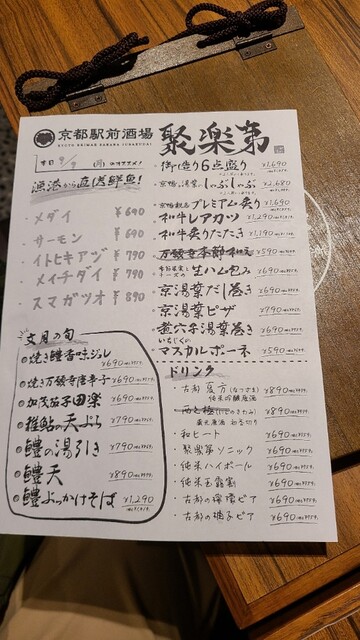 京都駅前酒場 聚楽第
KYOTO EKIMAE SAKABA JURAKUDAI
本日 9/9 (月) のオススメ!
漁港から直送鮮魚!
メダイ ¥690
サーモン ¥690
イトヒキアジ ¥790
メイチダイ ¥790
スマガツオ ¥890
文月の旬
焼き鱧香味ジュレ ¥690
焼き万願寺唐辛子 ¥690
加茂茄子田楽 ¥690
稚鮎の天ぷら ¥790
鱧の湯引き ¥790
鱧天 ¥890
鱧ぶっかけそば ¥1,290
・御造り6点盛り ¥1,690
しゃぶしゃぶ ¥2,680
プレミアム炙り ¥1,690
・和牛レアカツ ¥1,290
・和牛炙りたたき ¥1,190
・万願寺季節 ¥590
生ハム包み ¥690
・京湯葉だし巻き ¥690
・京湯葉ピザ ¥790
・煮穴子湯葉巻き ¥690
いちじくの
・マスカルポーネ ¥590
ドリンク
・古都 夏方 (なつざま) ¥890
純米吟醸原酒
¥890
・和ビート ¥690
・聚楽第ソニック ¥690
・純米ハイボール ¥690
・純米玉露割 ¥690
・古都の檸檬ビア ¥690
・古都の柚子ビア ¥690